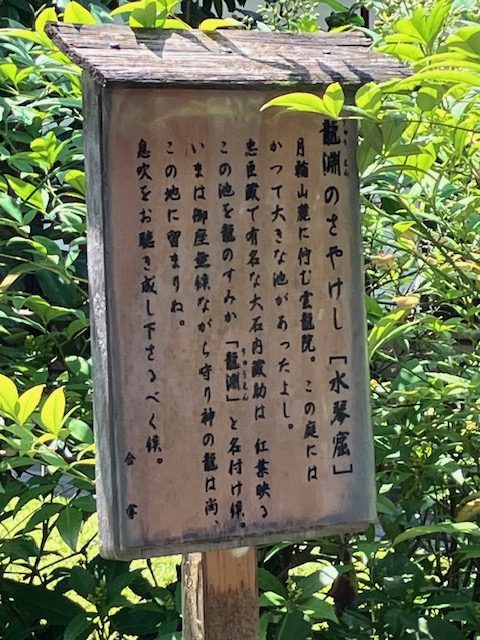 龍淵のさやけし「水琴窟」
月輪山麓に佇む雲龍院。この庭には
かつて大きな池があったよし。
忠臣蔵で有名な大石内蔵助は 紅葉映る
この池を龍のすみか「龍淵」と名付け候。
りゅうえん
いまは御座無候ながら守り神の龍は尚、
この地に留まりぬ。
息吹をお聴き成し下さるべく候。
合掌